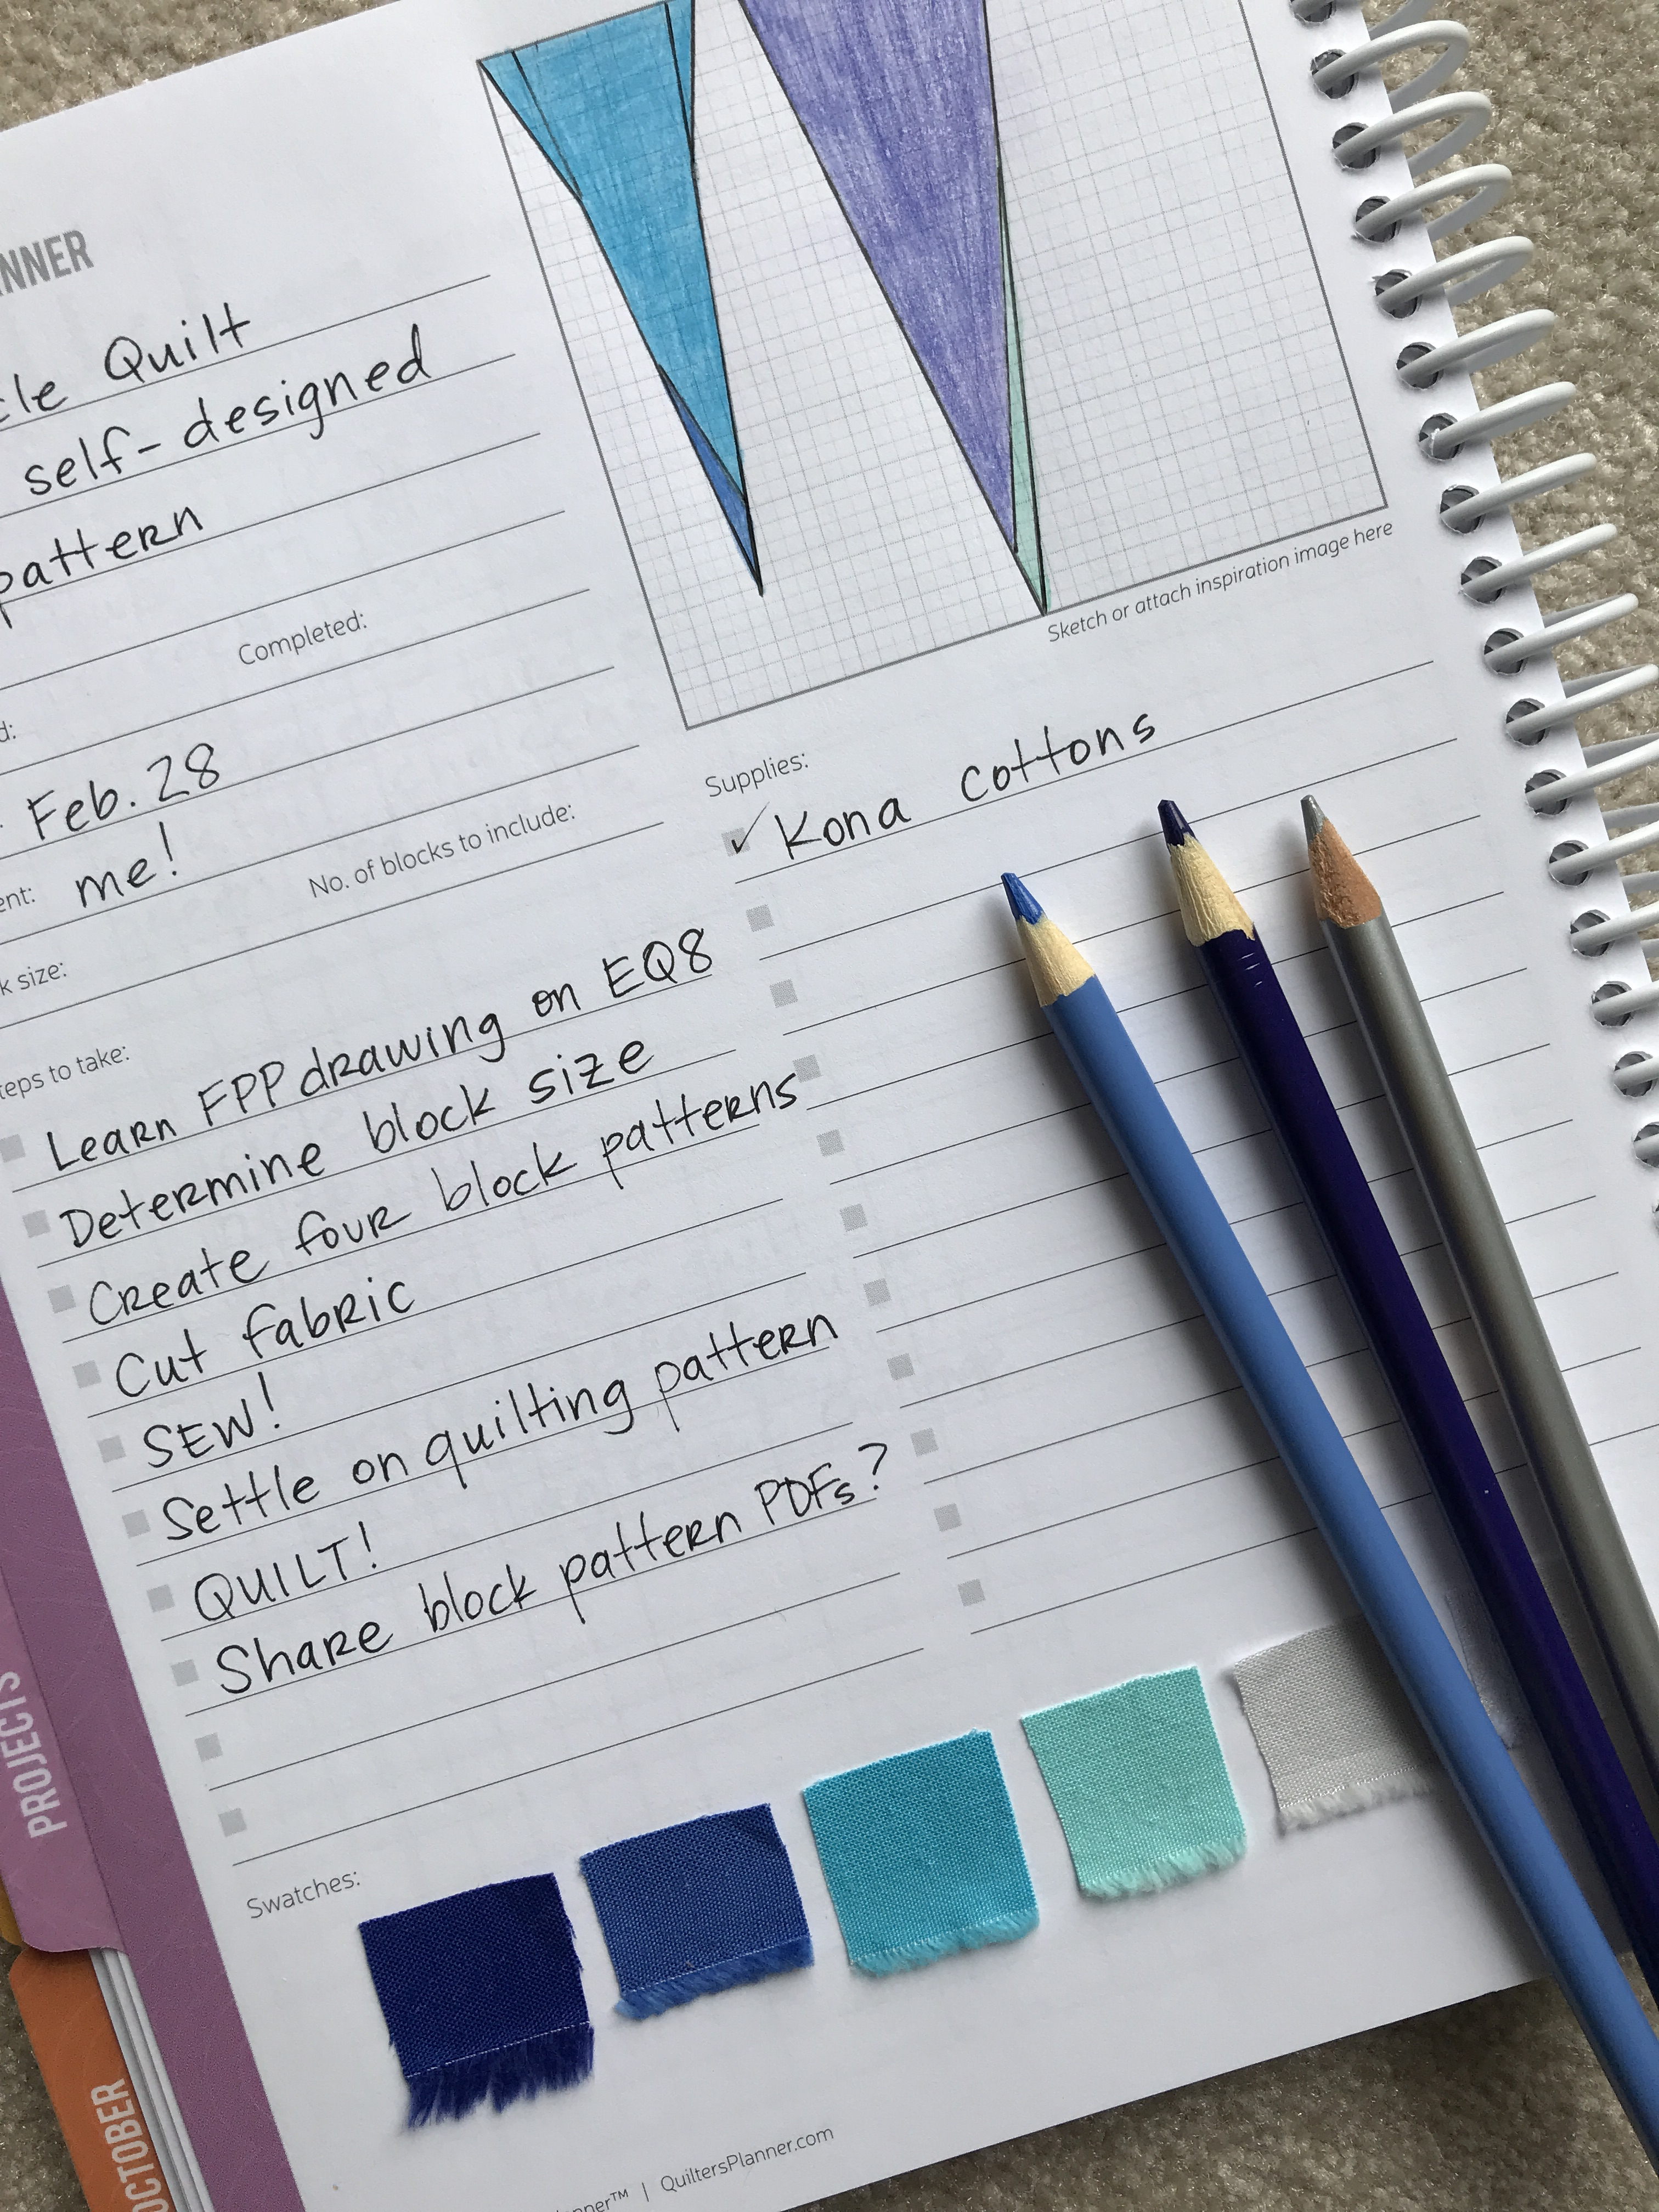 Quilt
self-designed
pattern
Completed:
Feb. 28
me!
No. of blocks to include:
size:
Sketch or attach inspiration image here
Supplies:
Kona cottons
to take:
Learn FPP drawing on EQ8
Determine block size
Create four block patterns
Cut fabric
SEW!
Settle on quilting pattern
QUILT!
Share block pattern PDFs?
Swatches:
PROJECTS
OCTOBER
| QuiltersPlanner.com